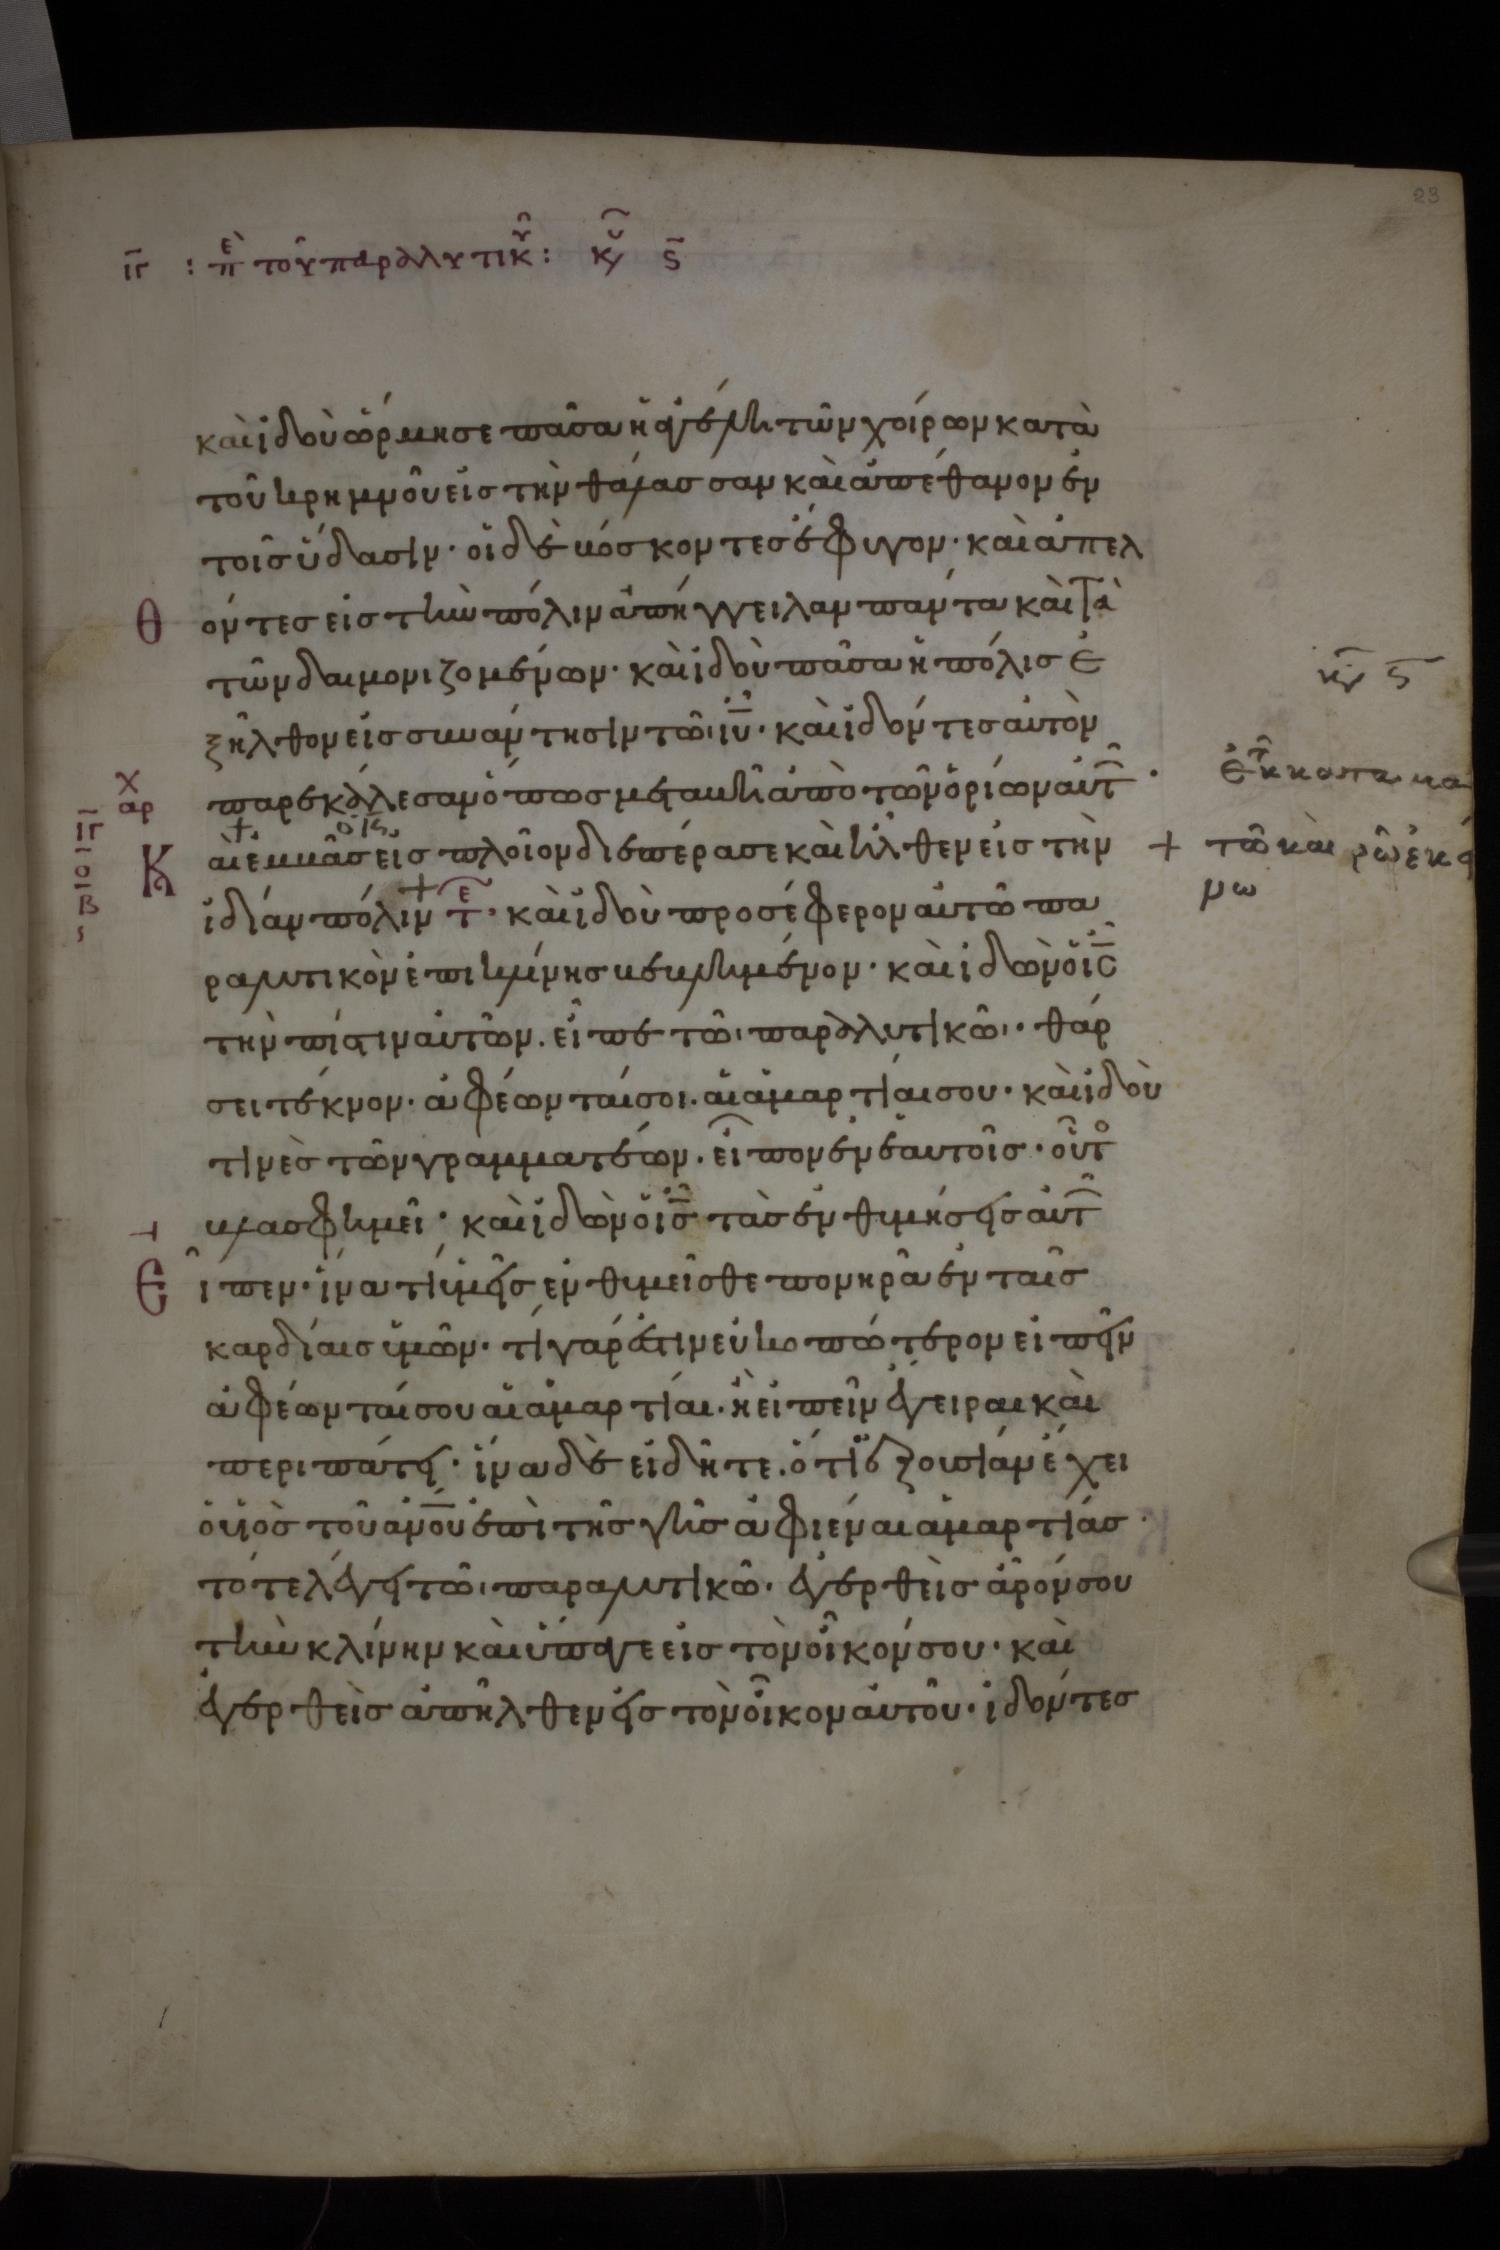 23
ιγ : πε τοῦ παραλυτικοῦ : κυ ς
καὶ ἰδοὺ ὥρμησε πᾶσα ἡ ἀγέλη τῶν χοίρων κατὰ
τοῦ κρημνοῦ εἰς τὴν θάλασσαν καὶ ἀπέθανον ἐν
τοῖς ὕδασιν· οἱ δὲ βόσκοντες ἔφυγον· καὶ ἀπελ
θόντες εἰς τὴν πόλιν ἀπήγγειλαν πάντα καὶ τὰ
τῶν δαιμονιζομένων· καὶ ἰδοὺ πᾶσα ἡ πόλις ἐ
ξῆλθον εἰς συνάντησιν τῶ ιυ· καὶ ἰδόντες αὐτὸν
παρεκάλεσαν ὅπως μεταβῆ ἀπὸ τῶν ὁρίων αὐτ·
Καὶ ἐμβὰς εἰς πλοῖον διεπέρασε καὶ ἦλθεν εἰς τὴν
ἰδίαν πόλιν τε· καὶ ἰδοὺ προσέφερον αὐτῶ πα
ραλυτικὸν ἐπὶ κλίνης βεβλημένον· καὶ ἰδὼν ὁ ις
τὴν πίστιν αὐτῶν. εἶπε τῶ παραλυτικῶ· θάρ
σει τέκνον· ἀφέωνταί σοι. αἱ ἁμαρτίαι σου· καὶ ἰδοὺ
τινὲς τῶν γραμματέων. εἶπον ἐν ἑαυτοῖς· οὗτο
βλασφημεῖ· καὶ ἰδὼν ὁ ις τὰς ἐνθυμήσεις αὐτ
Εἶπεν· ἵνα τί ὑμεῖς ἐνθυμεῖσθε πονηρὰ ἐν ταῖς
καρδίαις ὑμῶν· τί γάρ ἐστιν εὐκοπώτερον εἰπεῖν
ἀφέωνταί σου αἱ ἁμαρτίαι· ἢ εἰπεῖν ἔγειραι καὶ
περιπάτει· ἵνα δὲ εἰδῆτε. ὅτι ἐξουσίαν ἔχει
ὁ υἱὸς τοῦ ανου ἐπὶ τῆς γῆς ἀφιέναι ἁμαρτίας·
τότε λέγει τῶ παραλυτικῶ· ἐγερθεὶς ἆρόν σου
τὴν κλίνην καὶ ὕπαγε εἰς τὸν οἶκόν σου· καὶ
ἐγερθεὶς ἀπῆλθεν εἰς τὸν οἶκον αὐτοῦ· ἰδόντες
χ
αρ
ιγ
ο
β
κυ ς
+ τῶ καιρῶ ἐκεί
νω